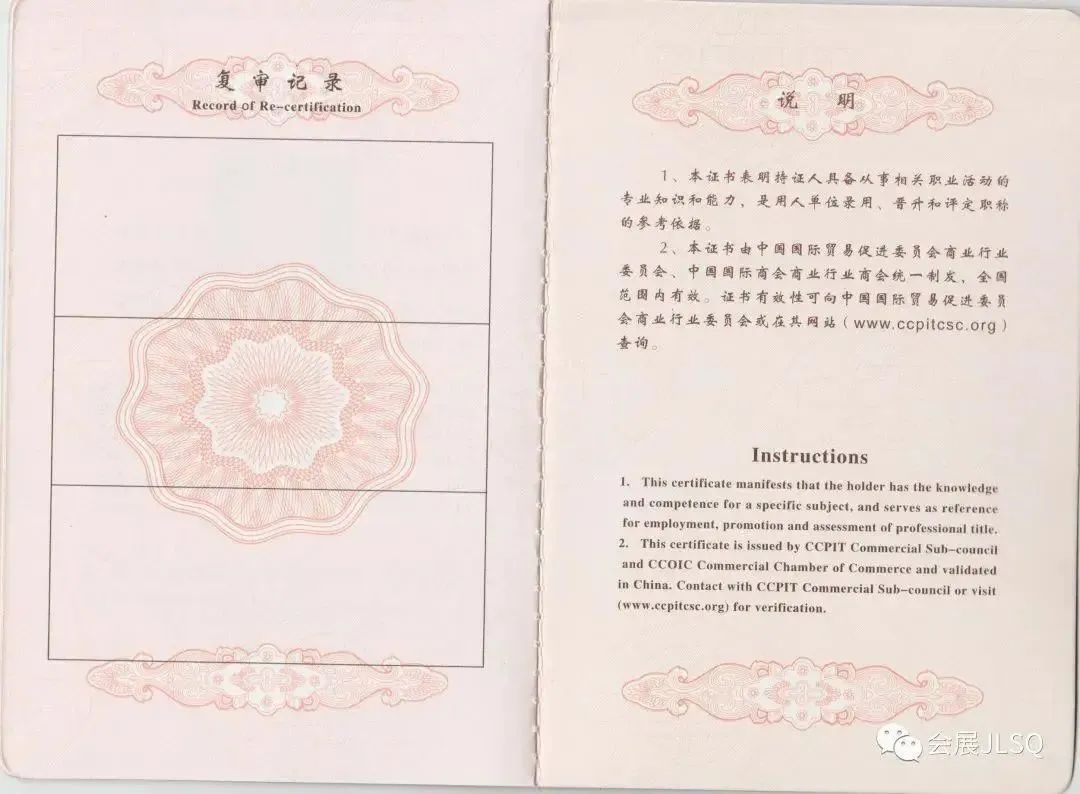 复审记录
Record of Re-certification
说 明
1、本证书表明持证人具备从事相关职业活动的
专业知识和能力，是用人单位录用、晋升和评定职称
的参考依据。
2、本证书由中国国际贸易促进委员会商业行业
委员会、中国国际商会商业行业商会统一制发，全国
范围内有效。证书有效性可向中国国际贸易促进委员
会商业行业委员会或在其网站（www.ccpitcsc.org）
查询。
Instructions
1. This certificate manifests that the holder has the knowledge
and competence for a specific subject, and serves as reference
for employment, promotion and assessment of professional title.
2. This certificate is issued by CCPIT Commercial Sub-council
and CCOIC Commercial Chamber of Commerce and validated
in China. Contact with CCPIT Commercial Sub-council or visit
(www.ccpitcsc.org) for verification.
会展JLSQ